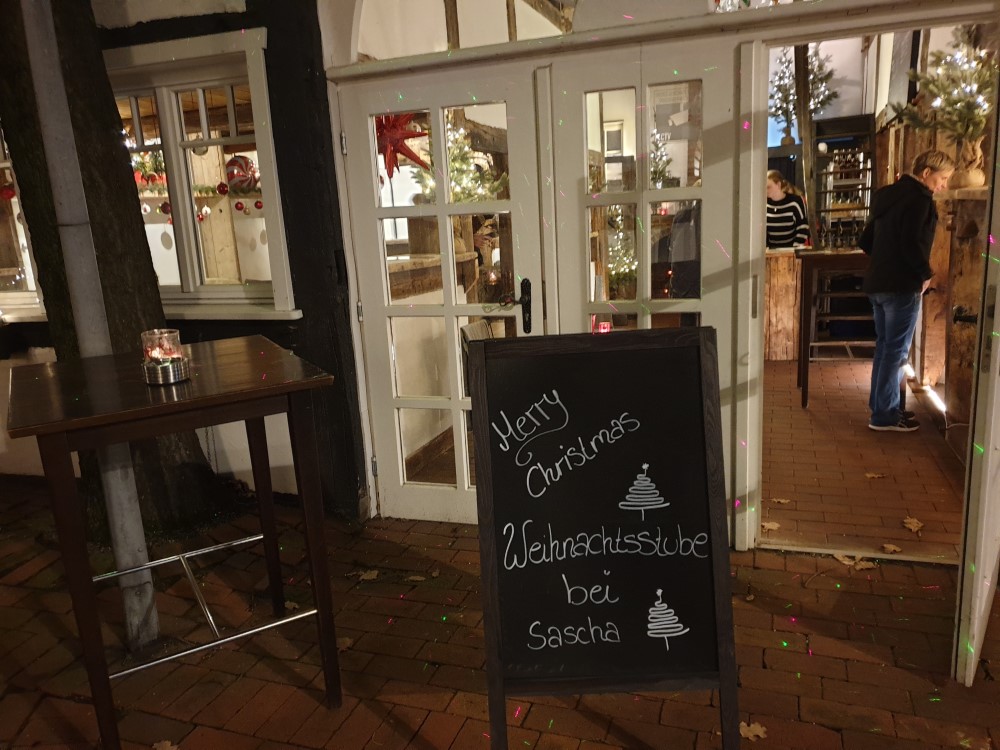 Merry
Christmas
Weihnachtsstube
bei
Sascha